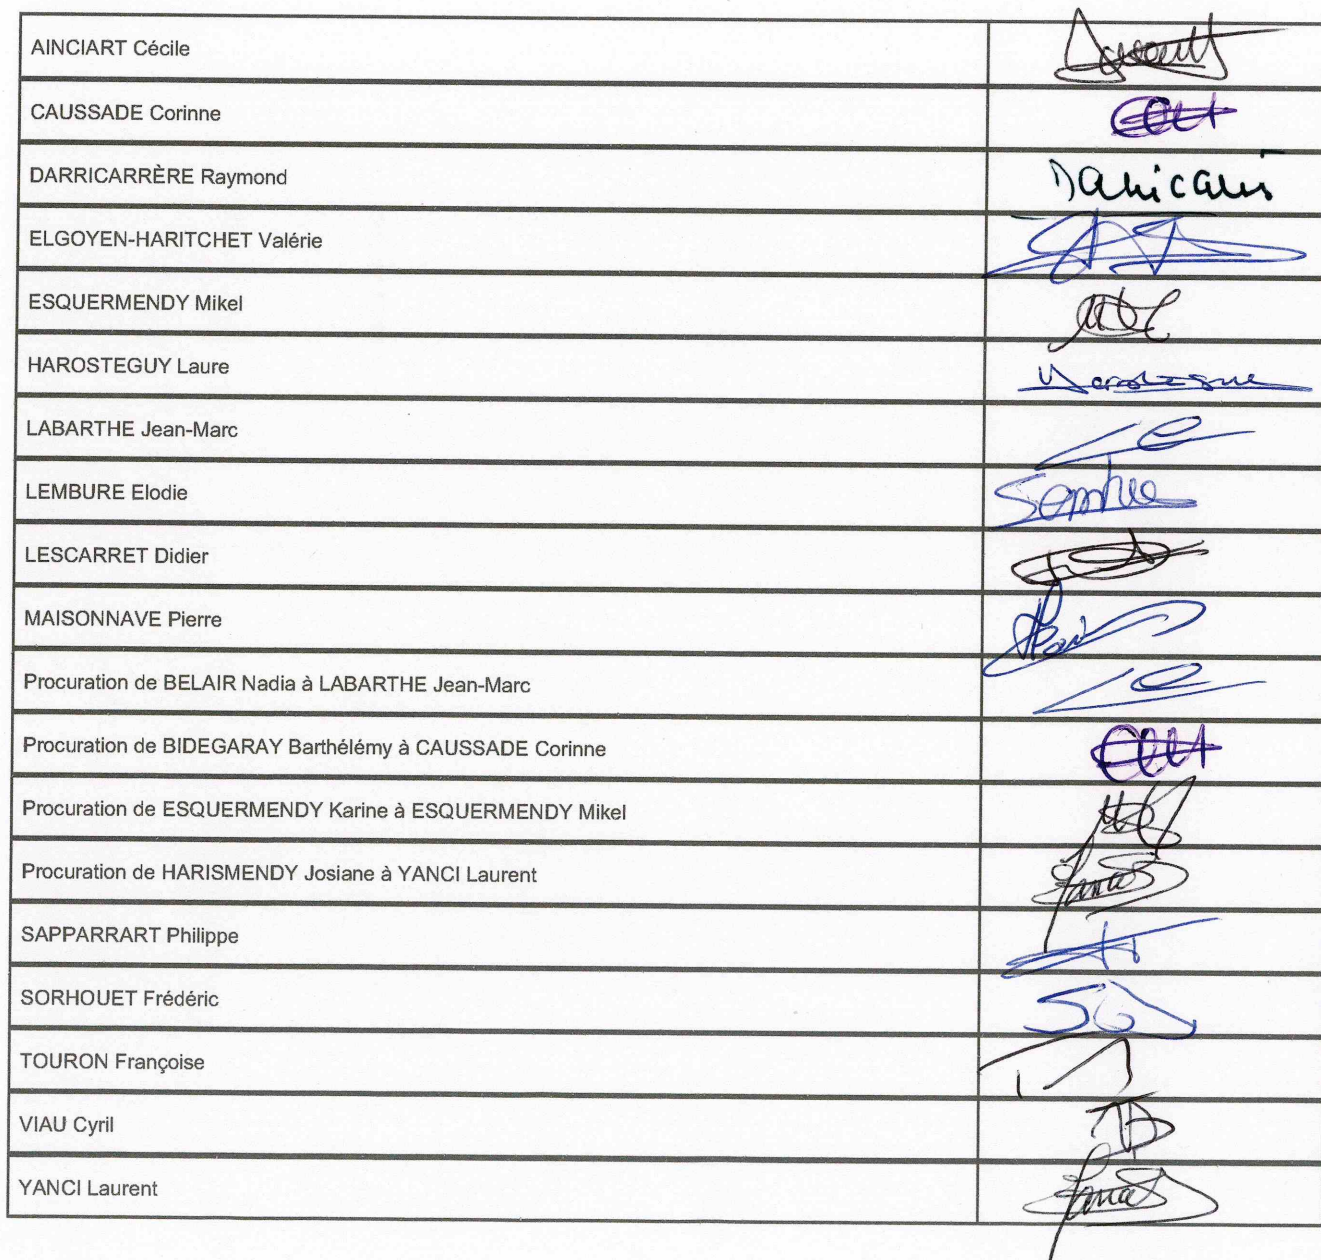 AINCIART Cécile
CAUSSADE Corinne
DARRICARRÈRE Raymond
ELGOYEN-HARITCHET Valérie
ESQUERMENDY Mikel
HAROSTEGUY Laure
LABARTHE Jean-Marc
LEMBURE Elodie
LESCARRET Didier
MAISONNAVE Pierre
Procuration de BELAIR Nadia à LABARTHE Jean-Marc
Procuration de BIDEGARAY Barthélémy à CAUSSADE Corinne
Procuration de ESQUERMENDY Karine à ESQUERMENDY Mikel
Procuration de HARISMENDY Josiane à YANCI Laurent
SAPPARRART Philippe
SORHOUET Frédéric
TOURON Françoise
VIAU Cyril
YANCI Laurent